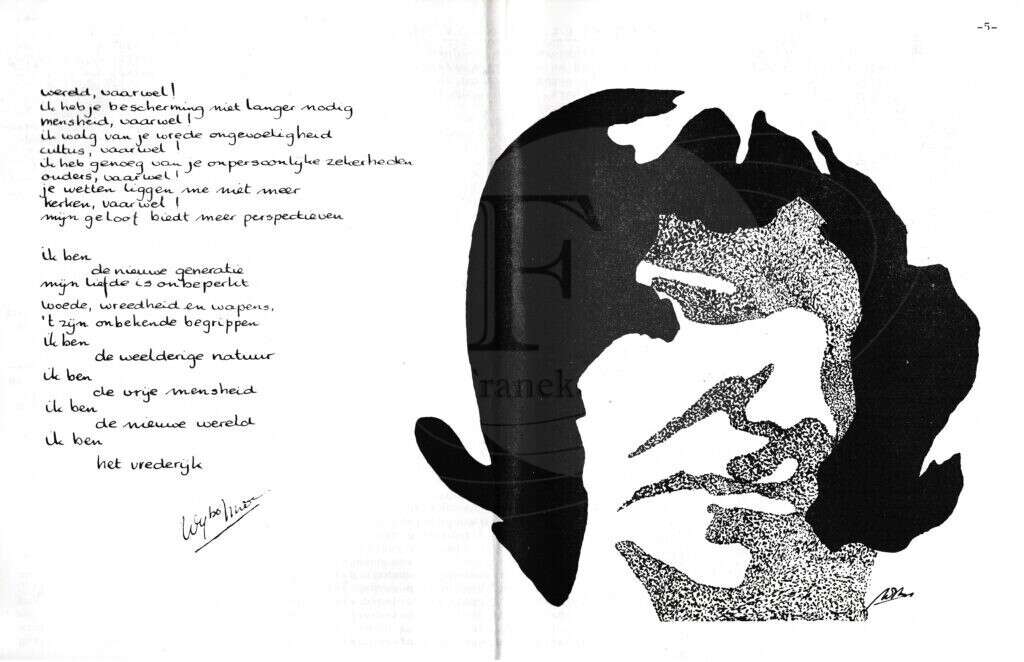 -5-
wereld, vaarwel!
ik heb je bescherming niet langer nodig
mensheid, vaarwel!
ik walg van je wrede ongevoeligheid
cultus, vaarwel!
ik heb genoeg van je onpersoonlijke zekerheden
ouders, vaarwel!
je wetten liggen me niet meer
kerken, vaarwel!
mijn geloof biedt meer perspectieven
ik ben
de nieuwe generatie
mijn liefde is onbeperkt
woede, wreedheid en wapens,
't zijn onbekende begrippen
ik ben
de weelderige natuur
ik ben
de vrije mensheid
ik ben
de nieuwe wereld
ik ben
het vrederijk
F